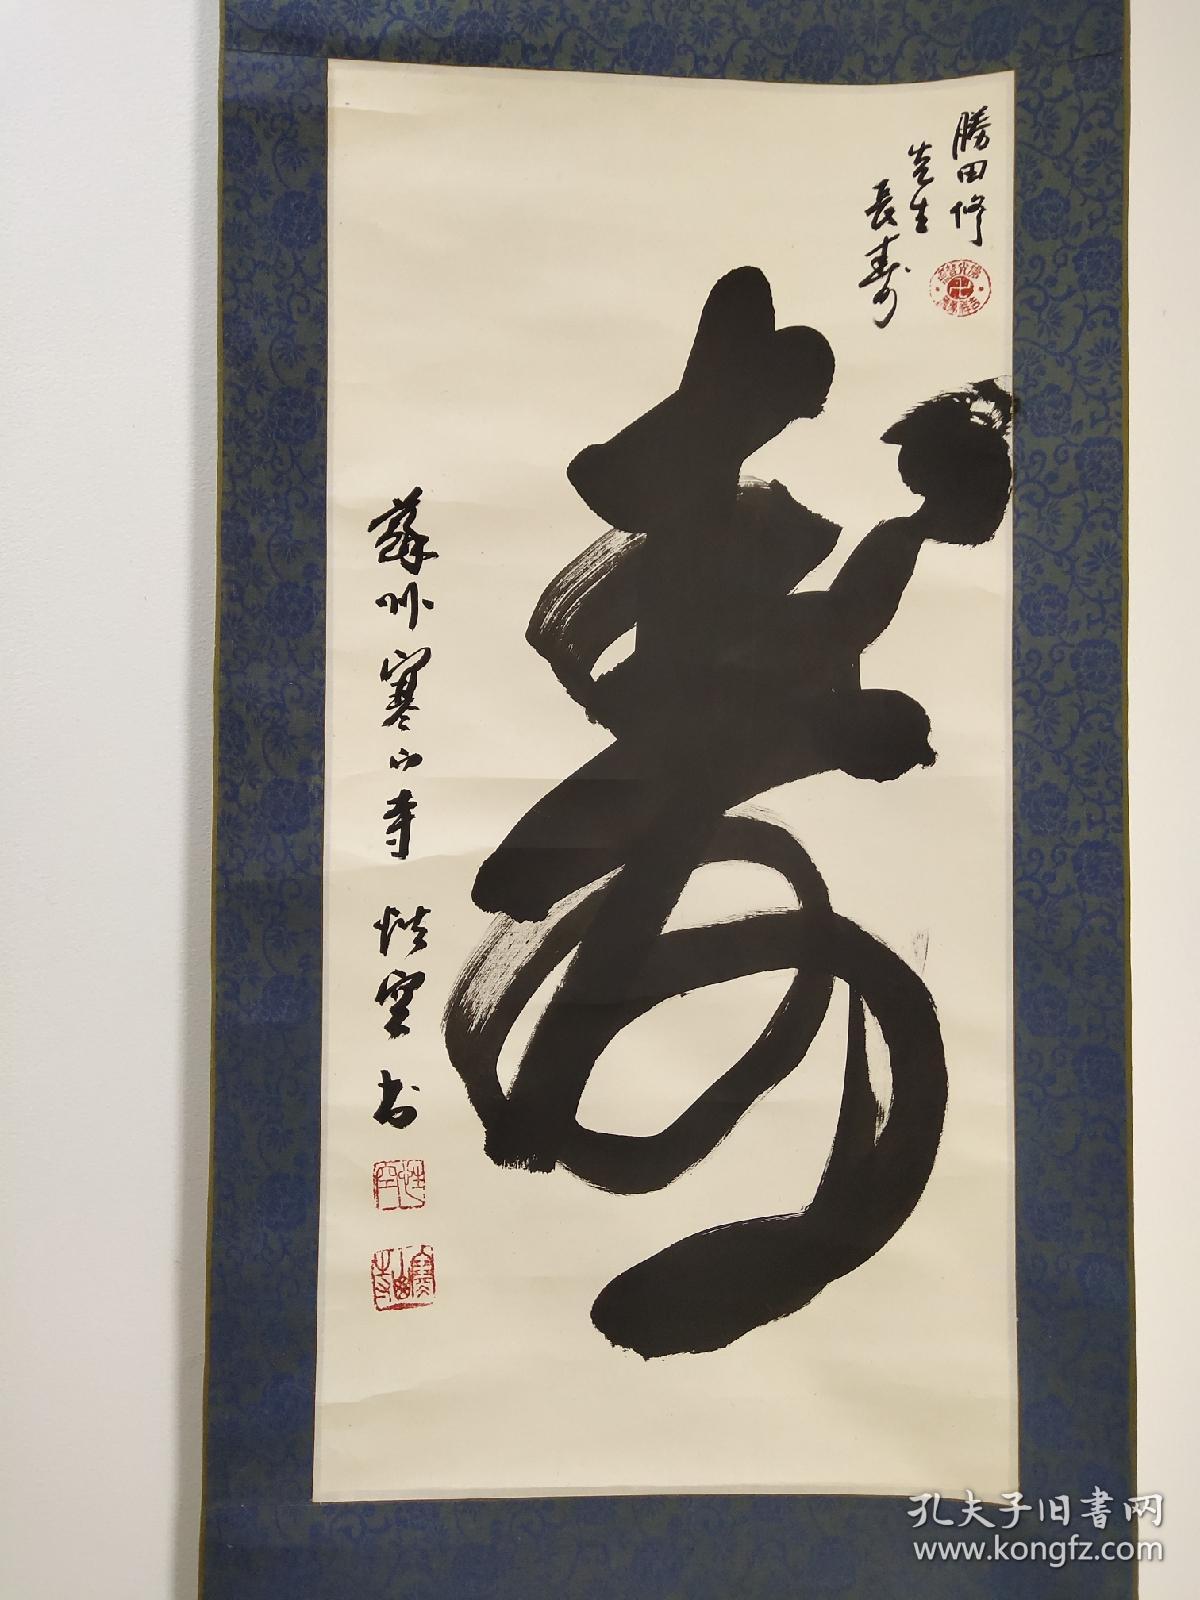 勝田修
先生
長壽
壽
蘇州寒山寺 性空书
性空
寒山寺
孔夫子旧书网
www.kongfz.com